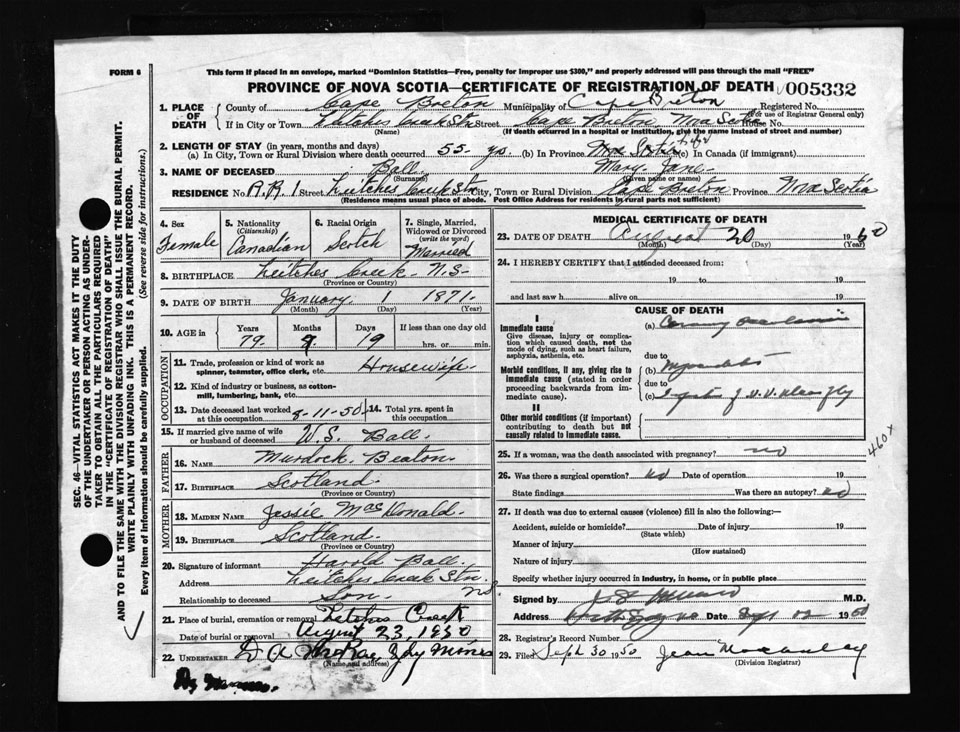 FORM 6
This form if placed in an envelope, marked "Dominion Statistics—Free, penalty for improper use $300," and properly addressed will pass through the mail "FREE"
PROVINCE OF NOVA SCOTIA—CERTIFICATE OF REGISTRATION OF DEATH 005332
1. PLACE OF DEATH
County of Cape Breton Municipality of Cape Breton Registered No.
(For use of Registrar General only)
If in City or Town Leitches Creek Stn Street Cape Breton Nova Scotia House No.
(Name) (If death occurred in a hospital or institution, give the name instead of street and number)
2. LENGTH OF STAY (in years, months and days)
(a) In City, Town or Rural Division where death occurred 55 yrs. (b) In Province Nova Scotia life (c) In Canada (if immigrant)
3. NAME OF DECEASED Ball. Mary Jane.
(Surname) (Given name or names)
RESIDENCE No. R.R 1 Street Leitches Creek Stn City, Town or Rural Division Cape Breton Province Nova Scotia
(Residence means usual place of abode. Post Office Address for residents in rural parts not sufficient)
4. Sex
Female
5. Nationality
(Citizenship)
Canadian
6. Racial Origin
Scotch
7. Single, Married, Widowed or Divorced
(write the word)
Married
8. BIRTHPLACE Leitches Creek N.S.
(Province or Country)
9. DATE OF BIRTH January 1 1871.
(Month) (Day) (Year)
10. AGE in
Years Months Days If less than one day old
79. 7. 19 hrs. or min.
OCCUPATION
11. Trade, profession or kind of work as spinner, teamster, office clerk, etc. Housewife.
12. Kind of industry or business, as cotton-mill, lumbering, bank, etc.
13. Date deceased last worked at this occupation 8-11-50
14. Total yrs. spent in this occupation
15. If married give name of wife or husband of deceased W.S. Ball.
FATHER
16. NAME Murdock Beaton.
17. BIRTHPLACE Scotland.
(Province or Country)
MOTHER
18. MAIDEN NAME Jessie MacDonald.
19. BIRTHPLACE Scotland.
(Province or Country)
20. Signature of informant Harold Ball.
Address Leitches Creek Stn. N.S.
Relationship to deceased Son.
21. Place of burial, cremation or removal Creek
Date of burial or removal August 23, 1950
22. UNDERTAKER D A McRae, Mines
(Name and address)
MEDICAL CERTIFICATE OF DEATH
23. DATE OF DEATH August 20 1950
(Month) (Day) (Year)
24. I HEREBY CERTIFY that I attended deceased from:
19 to 19
and last saw h alive on 19
CAUSE OF DEATH
I
Immediate cause
Give disease, injury or complication which caused death, not the mode of dying, such as heart failure, asphyxia, asthenia, etc.
(a)
due to
Morbid conditions, if any, giving rise to immediate cause (stated in order proceeding backwards from immediate cause).
(b)
due to
(c)
II
Other morbid conditions (if important) contributing to death but not causally related to immediate cause.
460x
25. If a woman, was the death associated with pregnancy? no
26. Was there a surgical operation? no Date of operation 19
State findings Was there an autopsy? no
27. If death was due to external causes (violence) fill in also the following—
Accident, suicide or homicide? Date of injury 19
(State which)
Manner of injury
(How sustained)
Nature of injury
Specify whether injury occurred in industry, in home, or in public place
Signed by M.D.
Address Date 1950
28. Registrar's Record Number
29. Filed Sept 30 1950 Jean
(Division Registrar)
SEC. 46—VITAL STATISTICS ACT MAKES IT THE DUTY
OF THE UNDERTAKER OR PERSON ACTING AS UNDER-
TAKER TO OBTAIN ALL THE PARTICULARS REQUIRED
IN THE "CERTIFICATE OF REGISTRATION OF DEATH"
AND TO FILE THE SAME WITH THE DIVISION REGISTRAR WHO SHALL ISSUE THE BURIAL PERMIT.
WRITE PLAINLY WITH UNFADING INK. THIS IS A PERMANENT RECORD.
Every item of information should be carefully supplied. (See reverse side for instructions.)